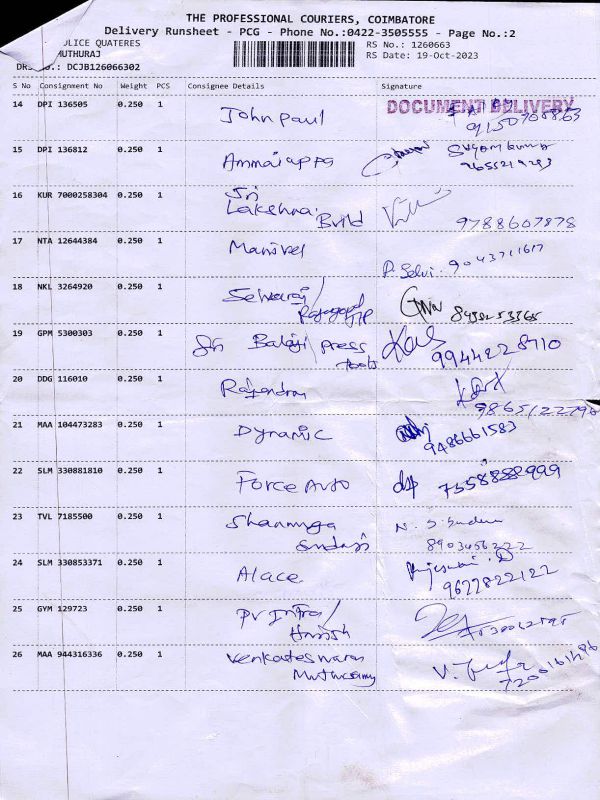 THE PROFESSIONAL COURIERS, COIMBATORE
Delivery Runsheet - PCG - Phone No.:0422-3505555 - Page No.:2
OLICE QUATERES
MUTHURAJ
RS No.: 1260663
RS Date: 19-Oct-2023
DR No.: DCJB126066302
S No Consignment No Weight PCS Consignee Details Signature
14 DPI 136505 0.250 1 John Paul DOCUMENT DELIVERY
15 DPI 136812 0.250 1 Ammaiappa
16 KUR 7000258304 0.250 1 Sri
Lakshmi Build
9788607878
17 NTA 12644384 0.250 1 Manivel
P. Selvi 9043711617
18 NKL 3264920 0.250 1 Selvaraj/
Rajagopal
19 GPM 5300303 0.250 1 Sri Balaji/Press
Tools
9944228710
20 DDG 116010 0.250 1 Rajendran
21 MAA 104473283 0.250 1 Dynamic
9486661583
22 SLM 330881810 0.250 1 Force Auto
23 TVL 7185500 0.250 1 Shanmuga
Sundari
8903456222
24 SLM 330853371 0.250 1 Alace
9677822122
25 GYM 129723 0.250 1 PV Infra/
Harish
26 MAA 944316336 0.250 1 Venkateswaran
Muthusamy